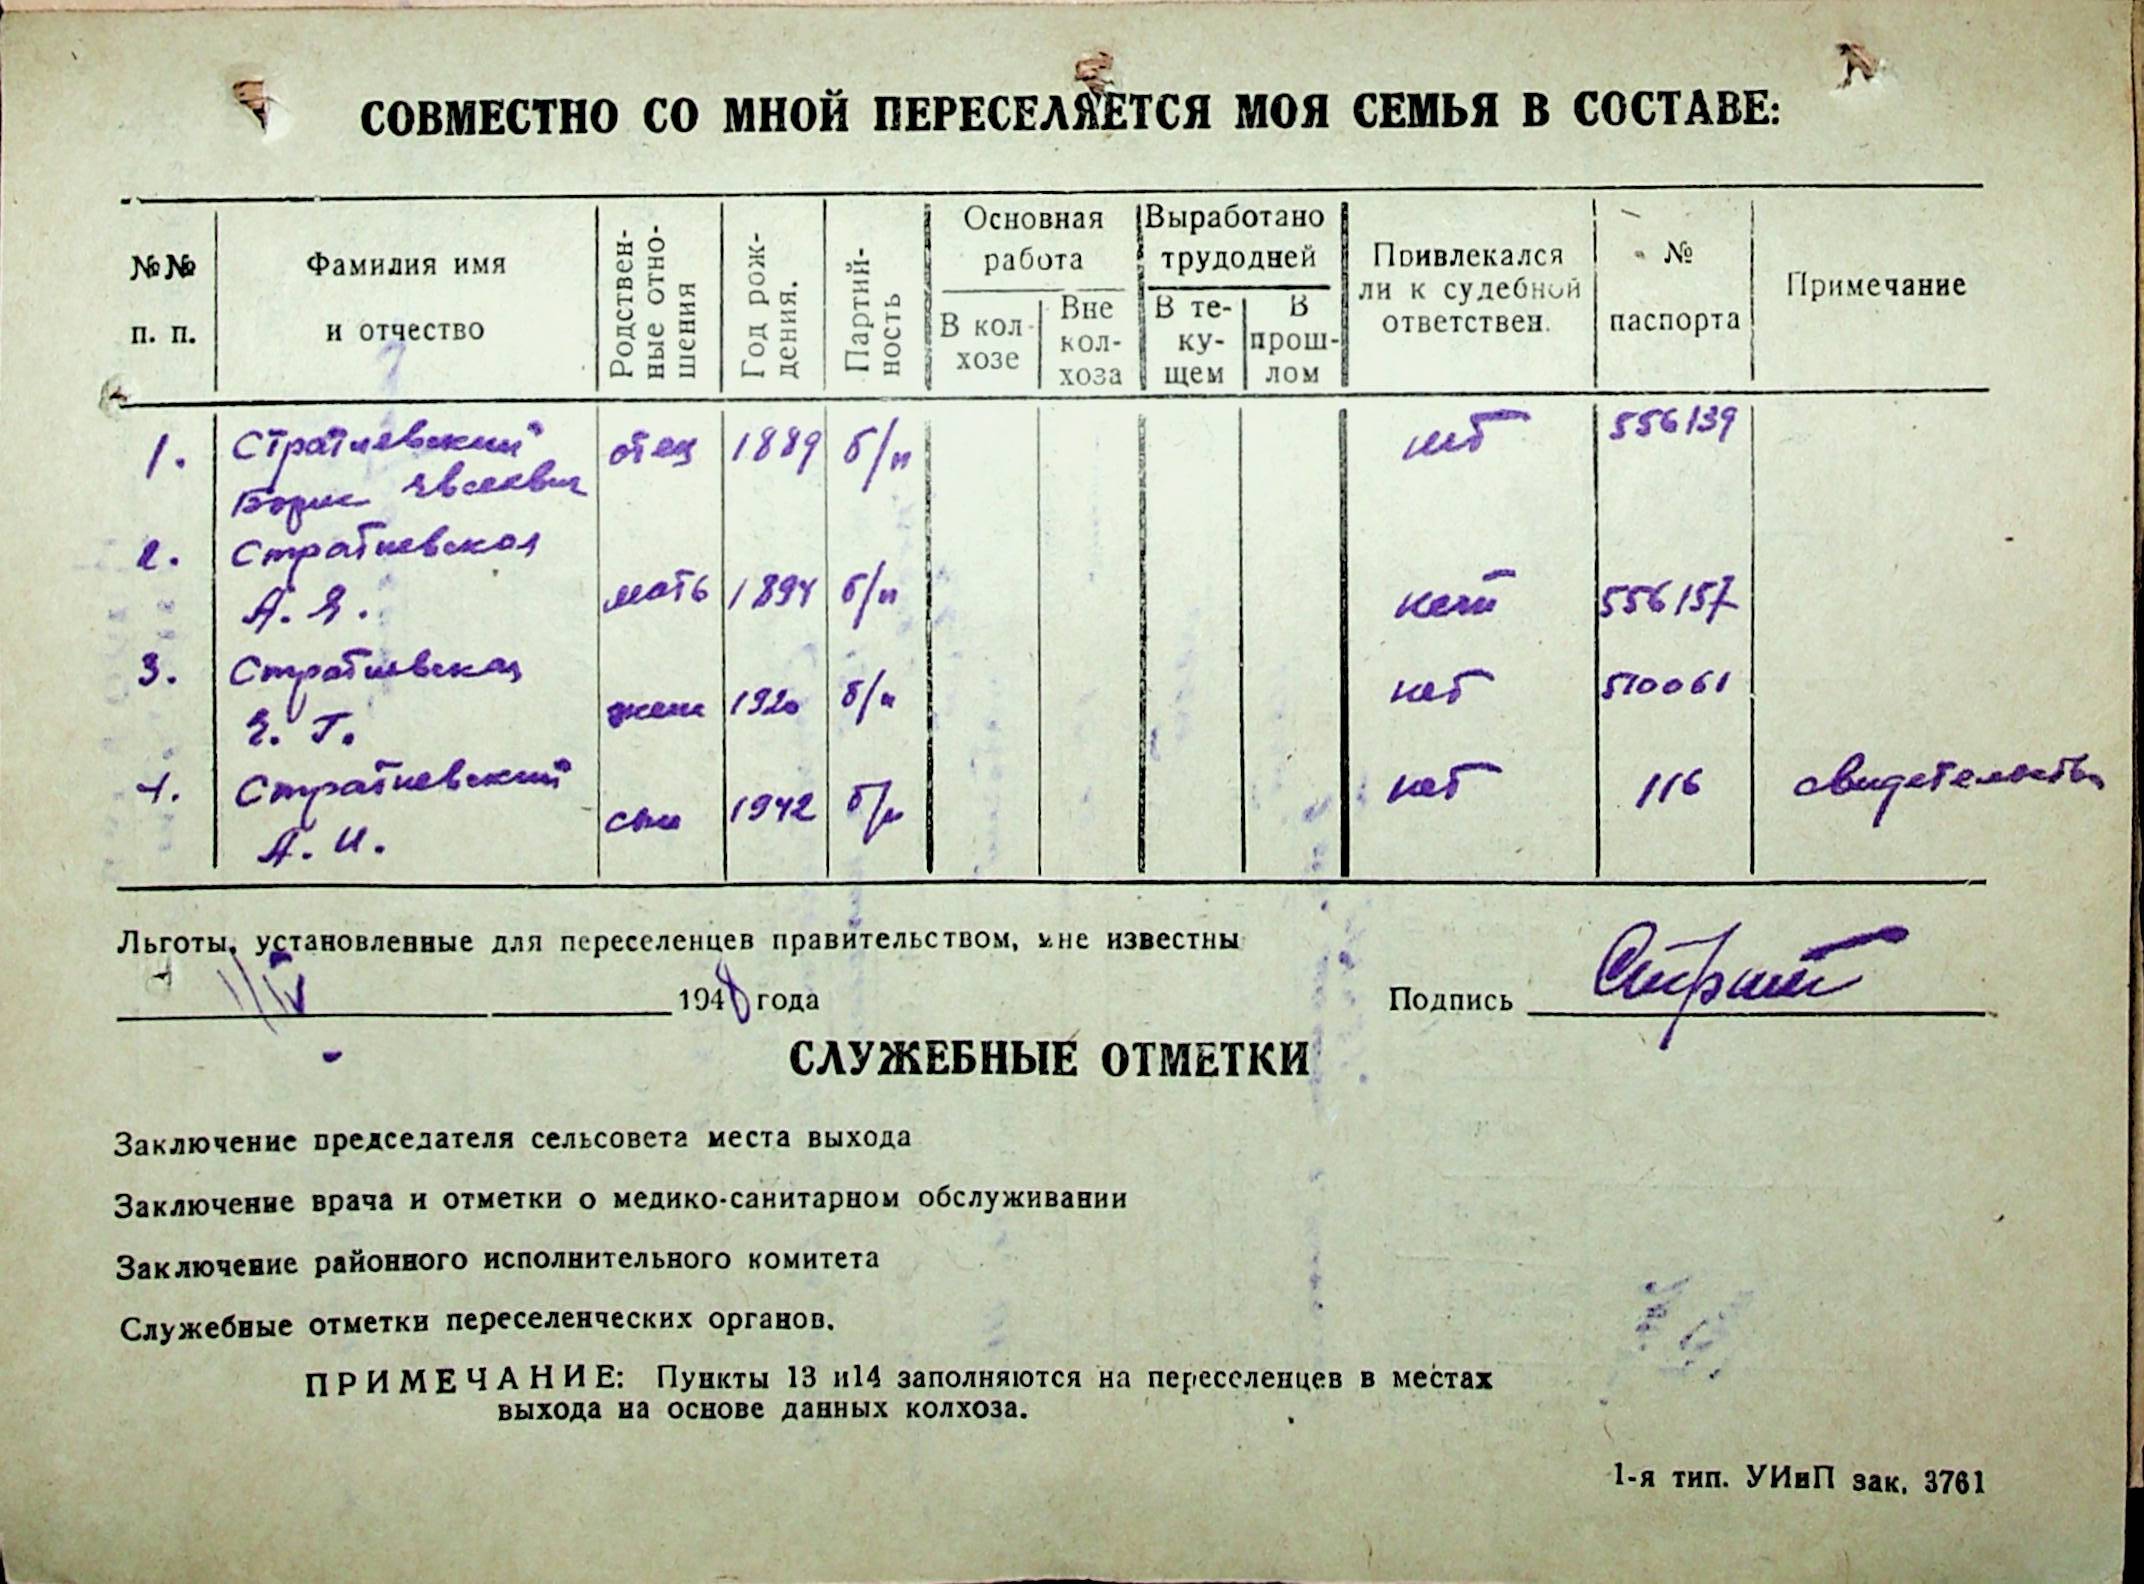 СОВМЕСТНО СО МНОЙ ПЕРЕСЕЛЯЕТСЯ МОЯ СЕМЬЯ В СОСТАВЕ:
№№ п. п.
Фамилия имя и отчество
Родствен-ные отно-шения
Год рож-дения.
Партий-ность
Основная работа
В кол-хозе
Вне кол-хоза
Выработано трудодней
В те-ку-щем
В прош-лом
Привлекался ли к судебной ответствен.
№ паспорта
Примечание
1. Стратиевский отец 1889 б/п нет 556139
Борис Евсеевич
2. Стратиевская
А. Я. мать 1894 б/п нет 556157
3. Стратиевская
Е. Г. жена 1920 б/п нет 510061
4. Стратиевский
А. И. сын 1942 б/п нет 116 свидетельство
Льготы, установленные для переселенцев правительством, мне известны
1/IV 1948 года Подпись Страти
СЛУЖЕБНЫЕ ОТМЕТКИ
Заключение председателя сельсовета места выхода
Заключение врача и отметки о медико-санитарном обслуживании
Заключение районного исполнительного комитета
Служебные отметки переселенческих органов.
ПРИМЕЧАНИЕ: Пункты 13 и14 заполняются на переселенцев в местах
выхода на основе данных колхоза.
1-я тип. УИиП зак. 3761